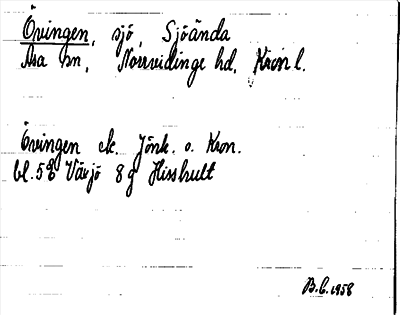 Övingen, sjö, Sjöända
Asa sn, Norrvidinge hd, Kron l.
Övingen ek. Jönk. o. Kron.
bl. 5E Växjö 8g Hisshult
B.C. 1958